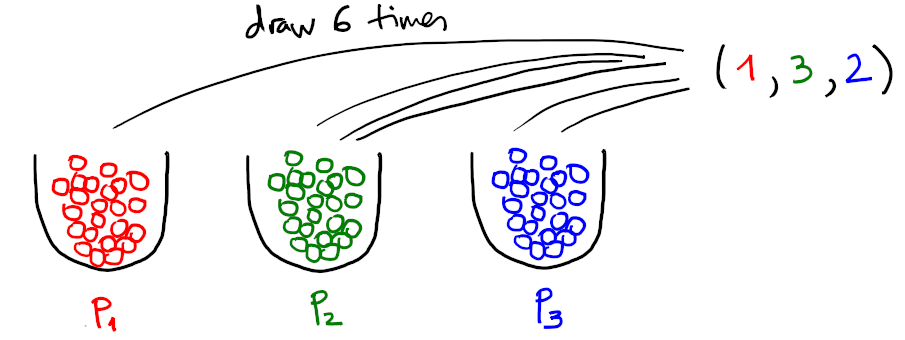 draw 6 times
(1, 3, 2)
P1 P2 P3